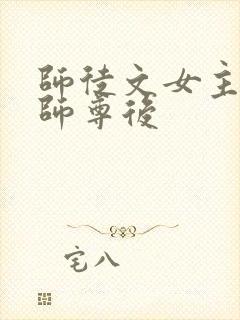 師徒文女主
師尊後
宅八